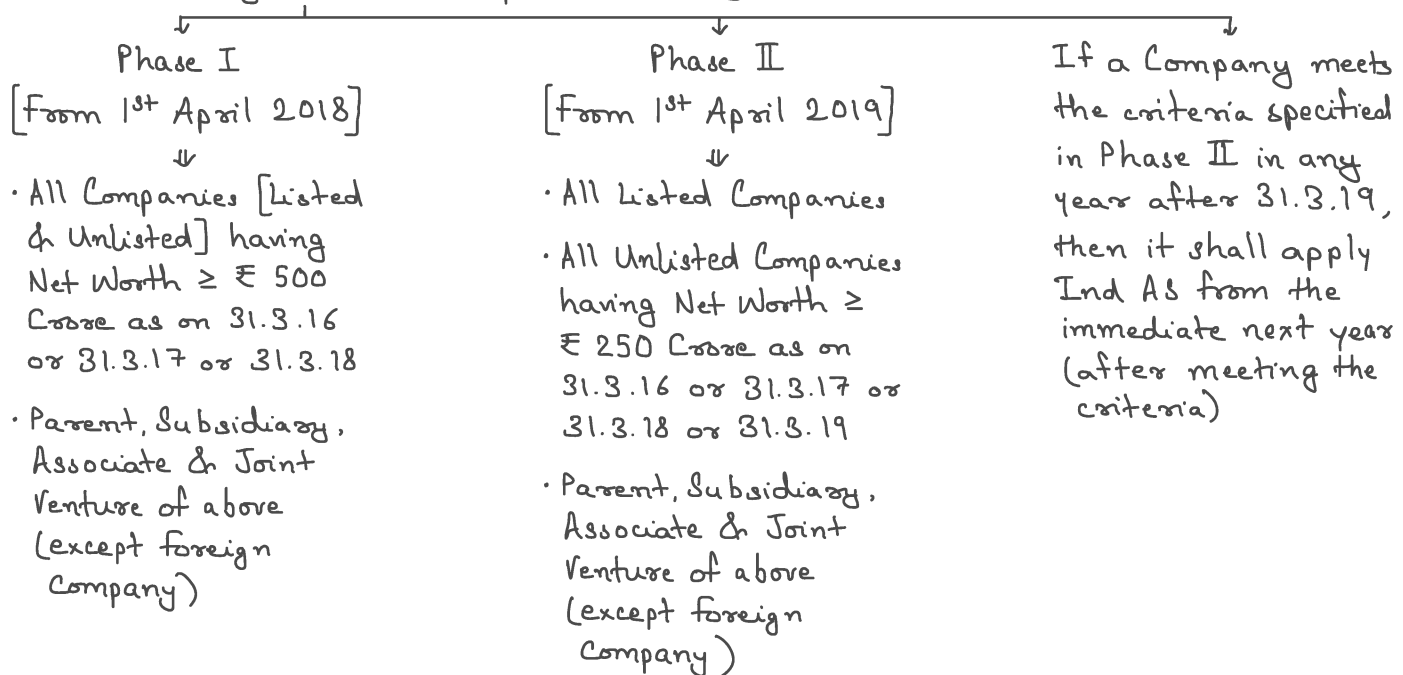 Phase I
[From 1st April 2018]
· All Companies [Listed
& Unlisted] having
Net Worth ≥ ₹ 500
Crore as on 31.3.16
or 31.3.17 or 31.3.18
· Parent, Subsidiary,
Associate & Joint
Venture of above
(except foreign
Company)
Phase II
[From 1st April 2019]
· All Listed Companies
· All Unlisted Companies
having Net Worth ≥
₹ 250 Crore as on
31.3.16 or 31.3.17 or
31.3.18 or 31.3.19
· Parent, Subsidiary,
Associate & Joint
Venture of above
(except foreign
Company)
If a Company meets
the criteria specified
in Phase II in any
year after 31.3.19,
then it shall apply
Ind AS from the
immediate next year
(after meeting the
criteria)